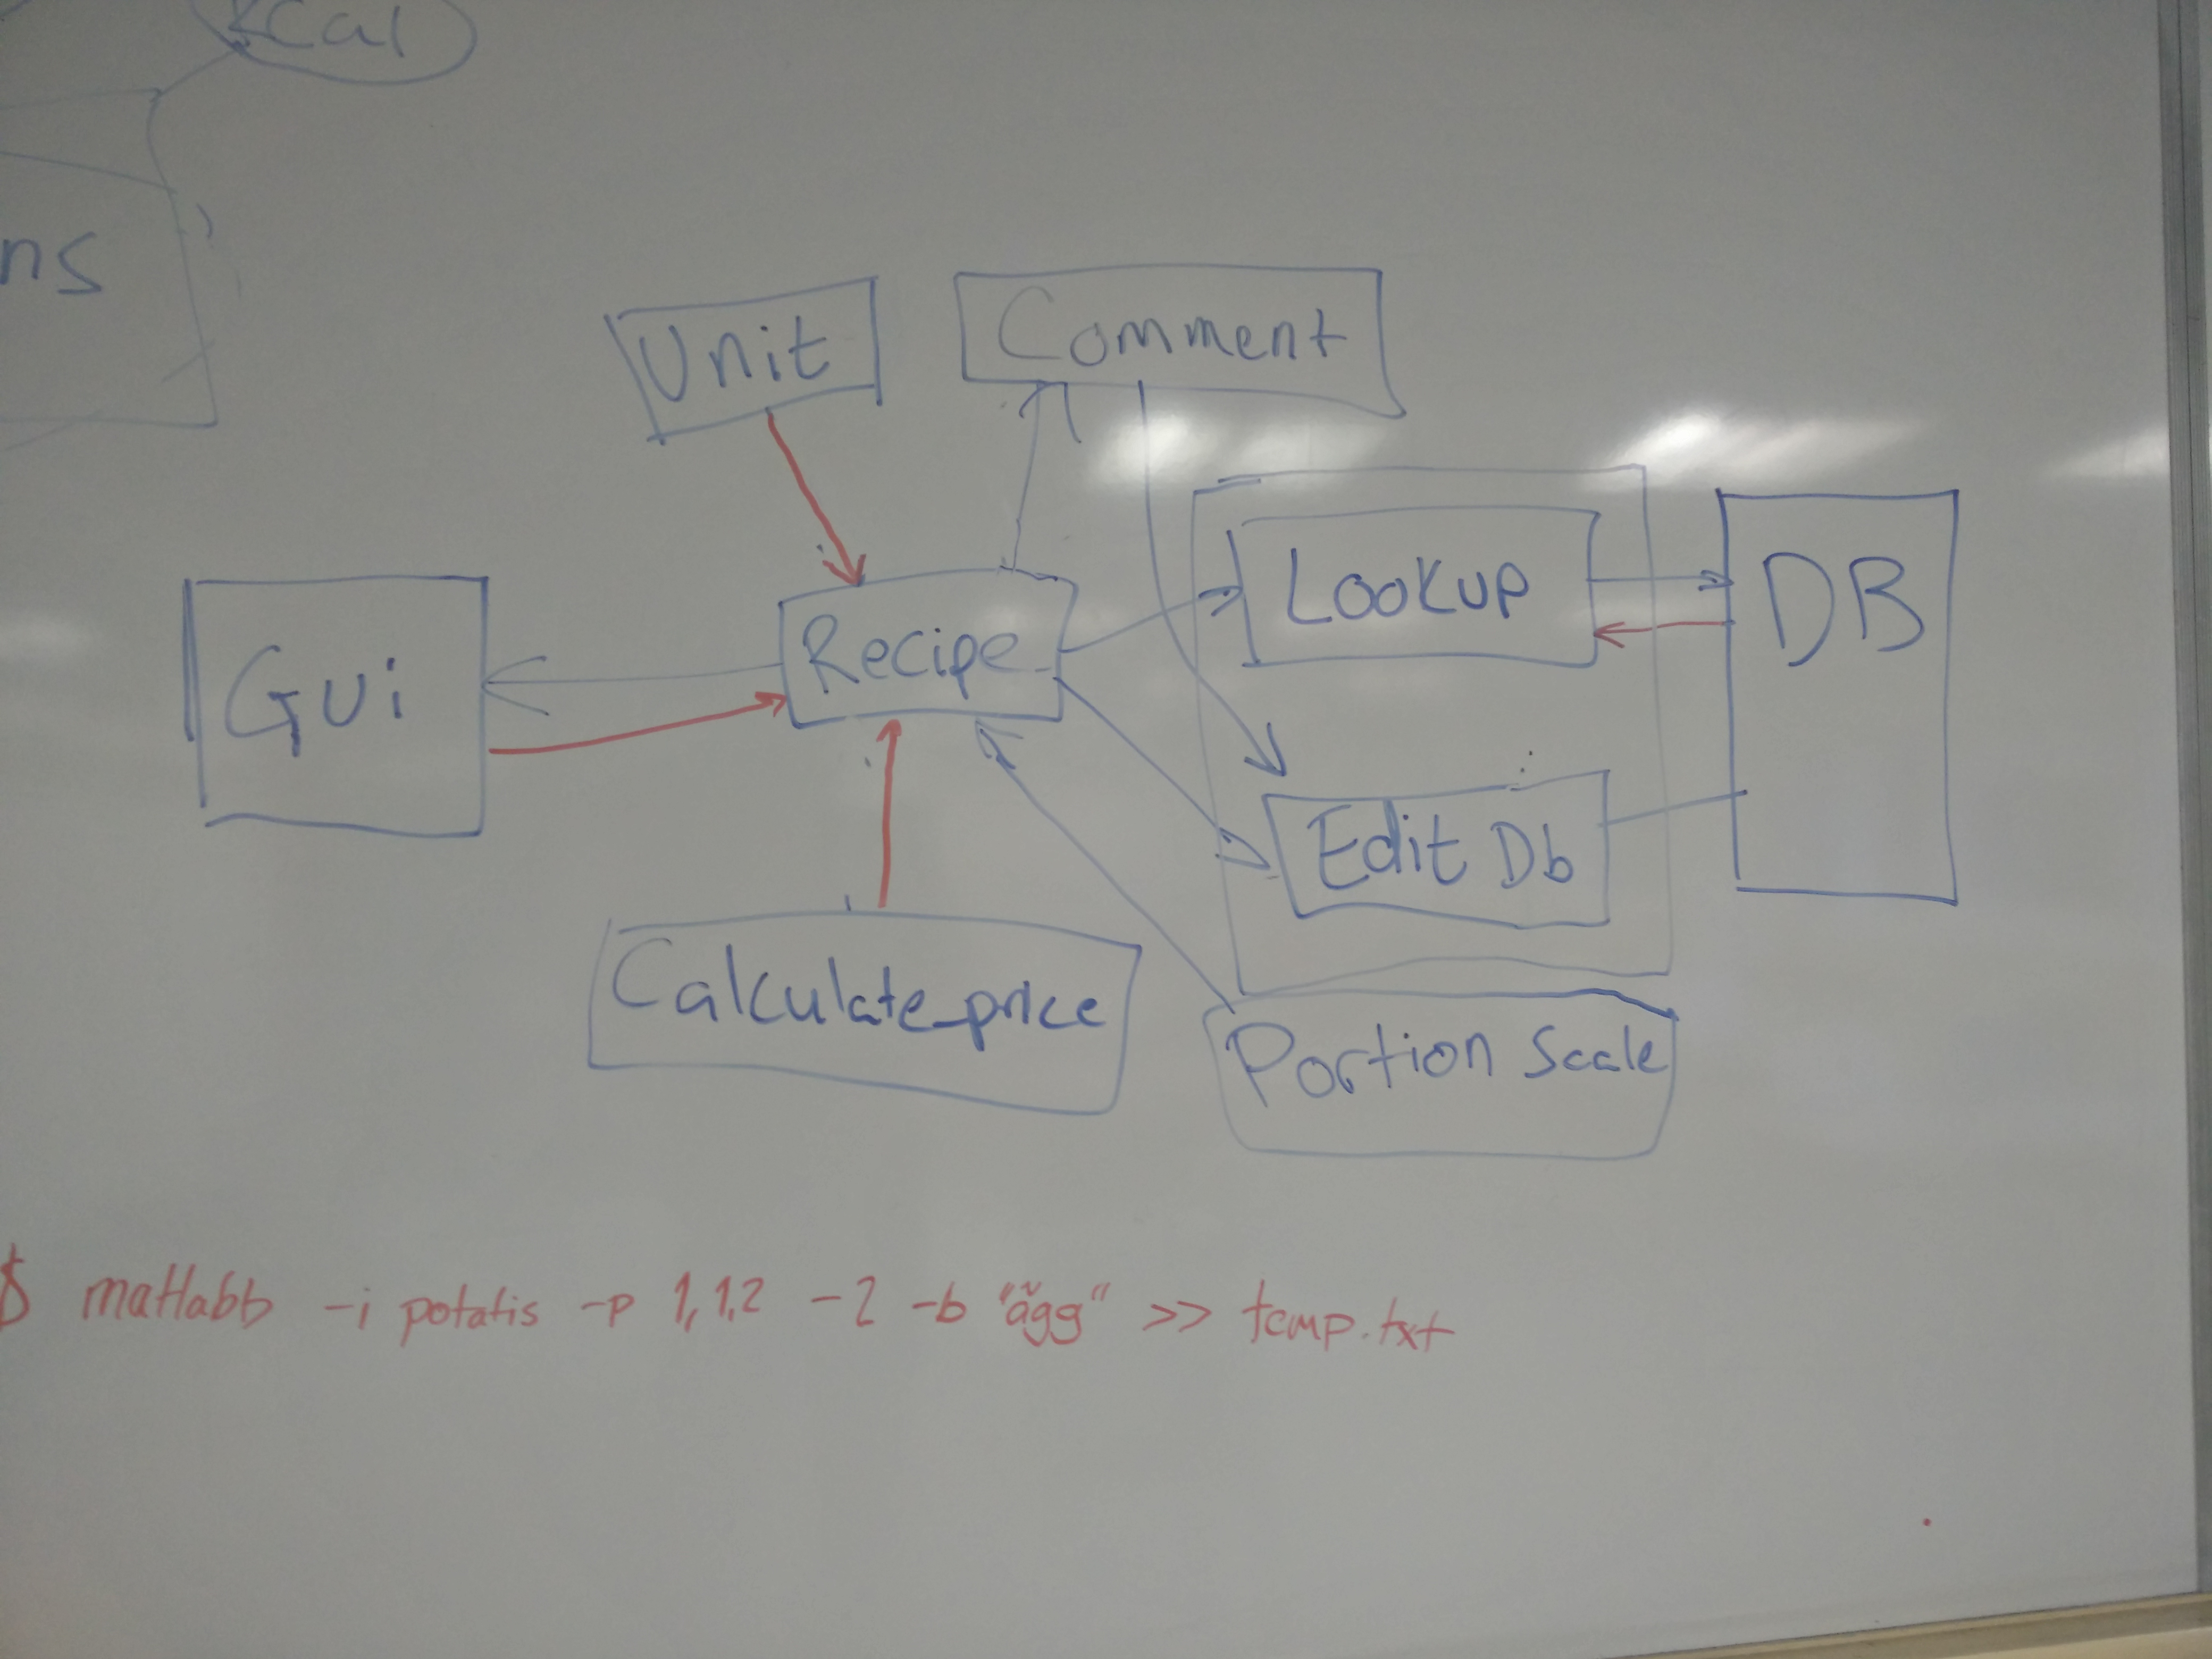 KCal
ns
Unit
Comment
Lookup
DB
Gui
Recipe
Edit Db
Calculate_price
Portion Scale
$ matlabb -i potatis -p 1,1,2 -2 -b "ägg" >> temp.txt